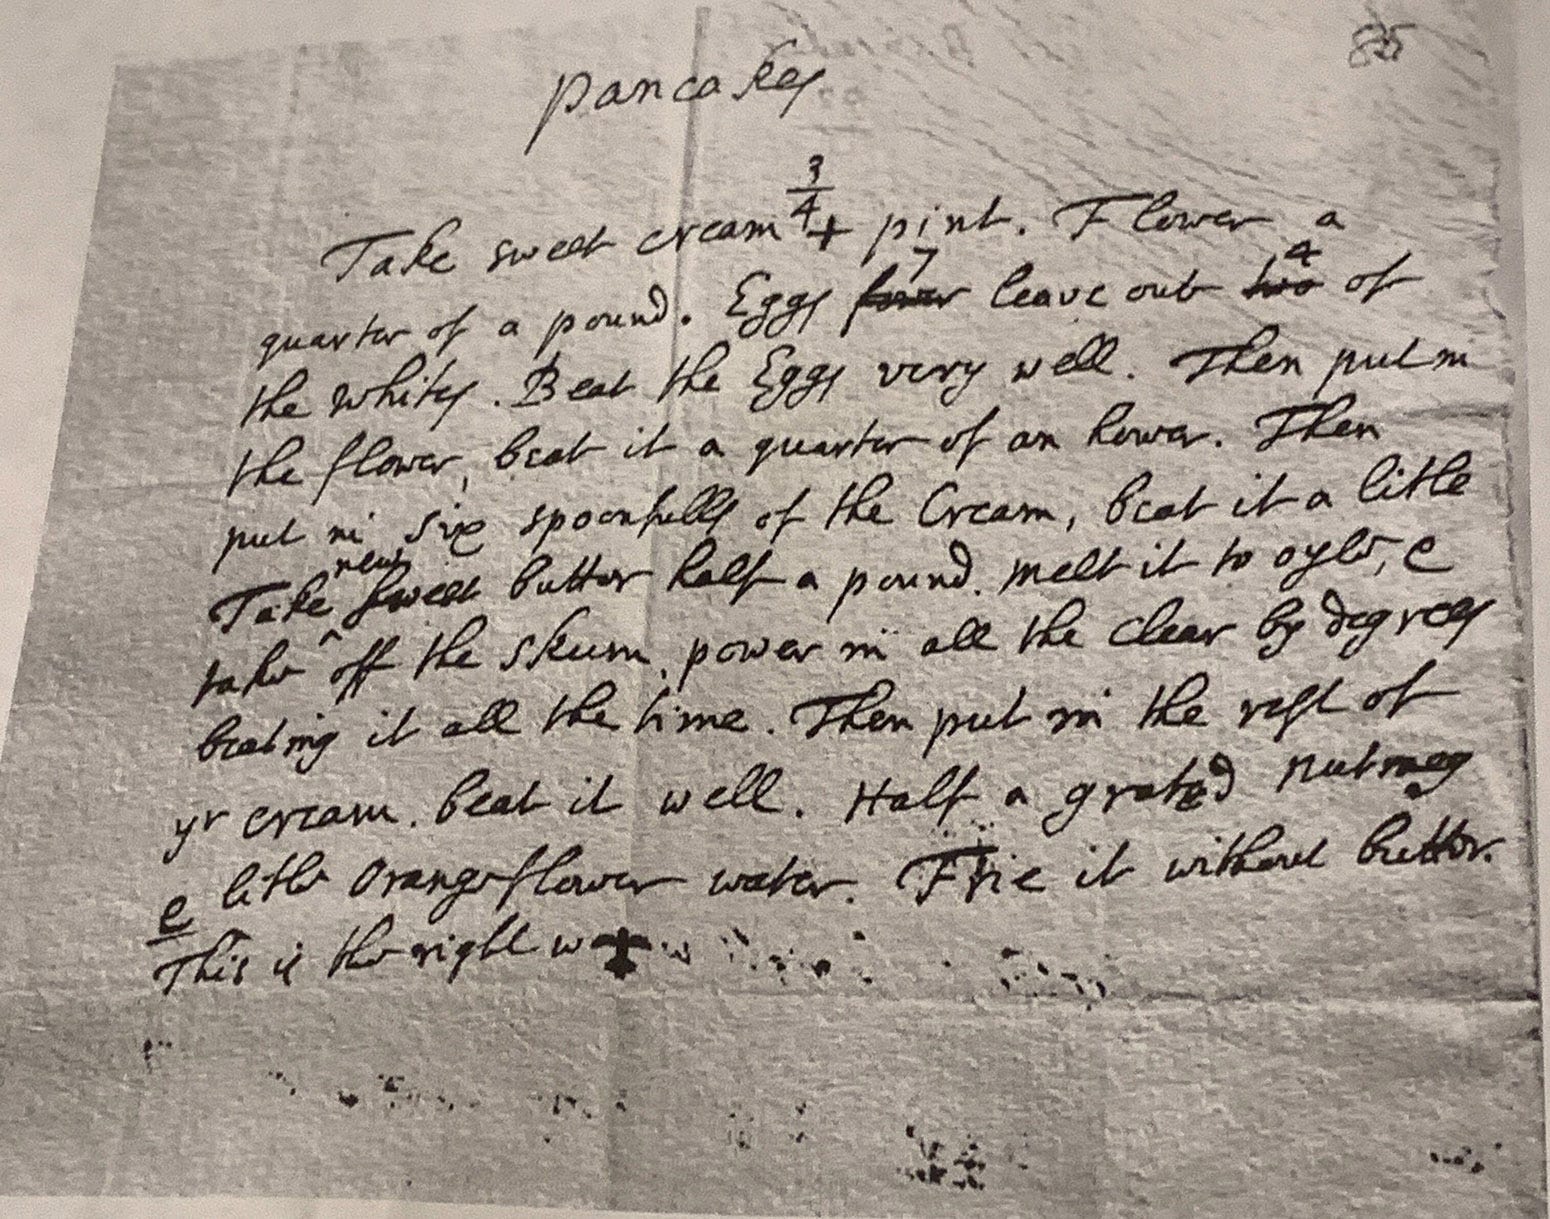 85
pancakes
Take sweet cream 3/4 + pint. Flower a
quarter of a pound. Eggs four 7 leave out two 4 of
the whites. Beat the Eggs very well. Then put in
the flower, beat it a quarter of an hower. Then
put in six spoonfulls of the Cream, beat it a litle
Take new sweet butter half a pound. melt it to oyle, &
take off the skum, power in all the clear by degrees
beating it all the time. Then put in the rest of
yr cream. beat it well. Half a grated nutmeg
& litle Orangeflower water. Frie it without butter.
This is the right